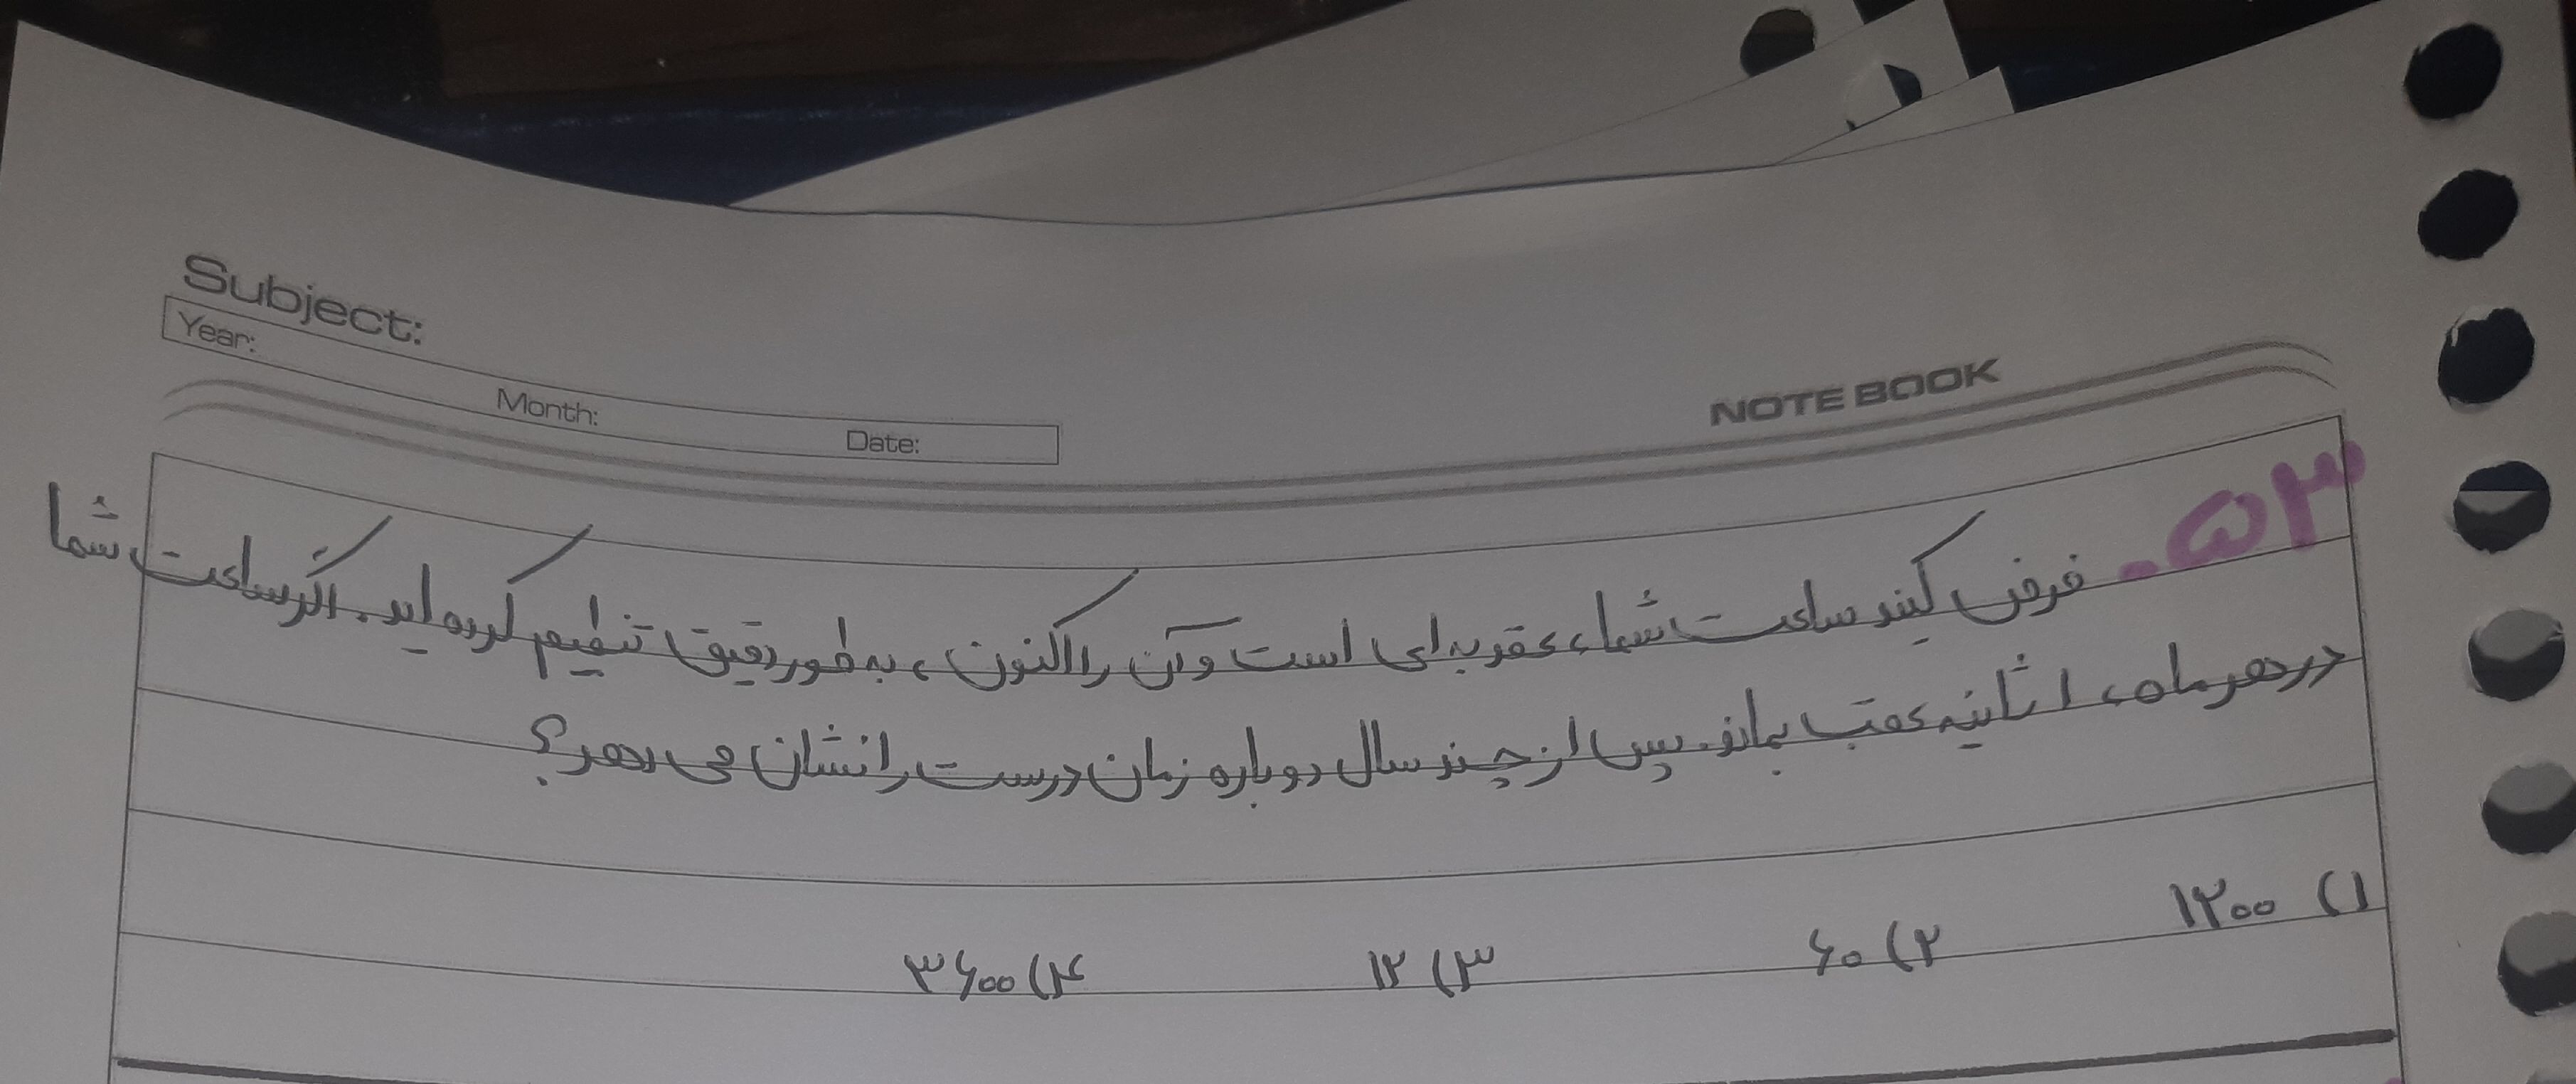 Subject:
Year: Month: Date:
NOTE BOOK
۵۳- فرض کنید ساعت شما، عقربه‌ای است و آن را اکنون، به طور دقیق تنظیم کرده‌اید. اگر ساعت شما
در هر ماه، ۱ ثانیه عقب بماند. پس از چند سال دوباره زمان درست را نشان می‌دهد؟
۱) ۱۲۰۰ ۲) ۶۰ ۳) ۱۲ ۴) ۳۶۰۰